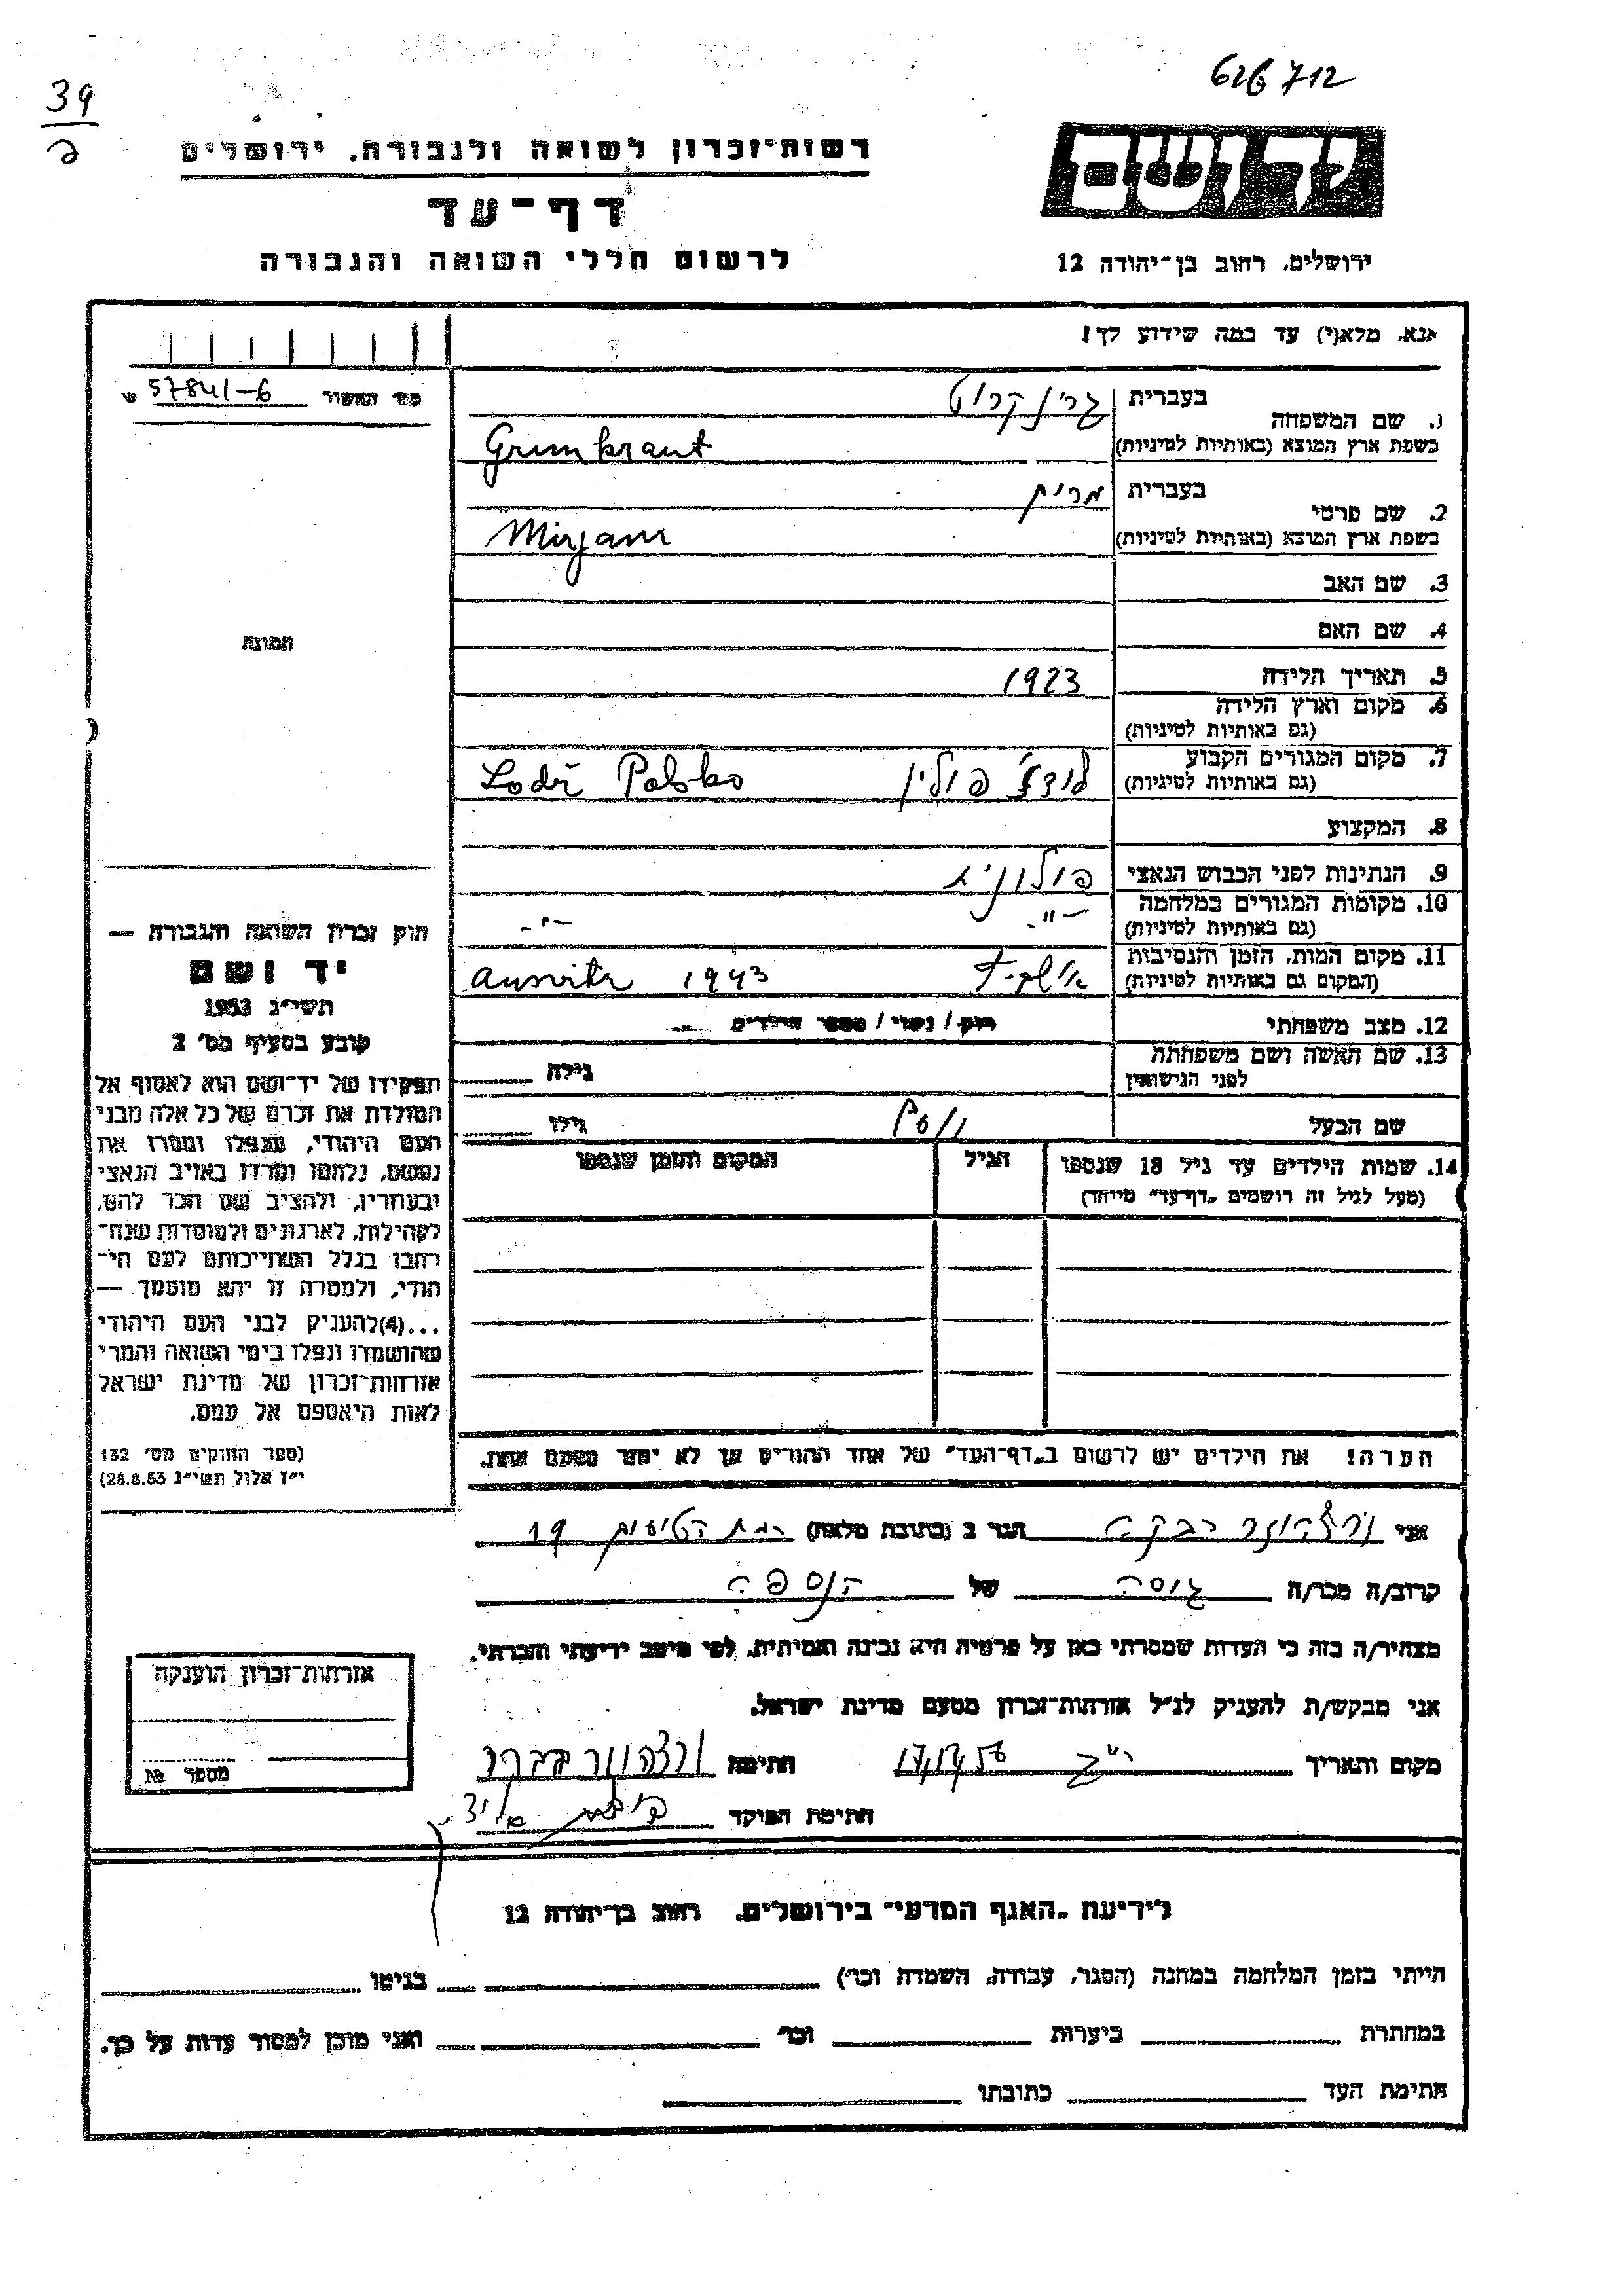 626712
39
רשות־זכרון לשואה ולגבורה, ירושלים
דף־עד
לרשום חללי השואה והגבורה
יד ושם
ירושלים, רחוב בן־יהודה 12
אנא, מלא(י) עד כמה שידוע לך!
מס׳ האשור 57841-6
1. שם המשפחה
בעברית גרינקרוט
בשפת ארץ המוצא (באותיות לטיניות) Grunkraut
2. שם פרטי
בעברית מרים
בשפת ארץ המוצא (באותיות לטיניות) Mirjam
3. שם האב
4. שם האם
5. תאריך הלידה 1923
6. מקום וארץ הלידה
(גם באותיות לטיניות)
7. מקום המגורים הקבוע לודז׳ פולין Lodž Polsko
(גם באותיות לטיניות)
8. המקצוע
9. הנתינות לפני הכבוש הנאצי פולנית
10. מקומות המגורים במלחמה -"- -"-
(גם באותיות לטיניות)
11. מקום המות, הזמן והנסיבות 1943
(המקום גם באותיות לטיניות)
12. מצב משפחתי רוק/נשוי/מספר הילדים
13. שם האשה ושם משפחתה
לפני הנישואין
גילה
שם הבעל
גילו
14. שמות הילדים עד גיל 18 שנספו
(מעל לגיל זה רושמים „דף־עד" מיוחד)
הגיל
המקום והזמן שנספו
הערה! את הילדים יש לרשום ב„דף־העד" של אחד ההורים אך לא יותר מפעם אחת.
תמונה
חוק זכרון השואה והגבורה —
יד ושם
תשי״ג 1953
קובע בסעיף מס׳ 2
תפקידו של יד־ושם הוא לאסוף אל
המולדת את זכרם של כל אלה מבני
העם היהודי, שנפלו ומסרו את
נפשם, נלחמו ומרדו באויב הנאצי
ובעוזריו, ולהציב שם וזכר להם,
לקהילות, לארגונים ולמוסדות שנח־
רבו בגלל השתייכותם לעם הי־
הודי, ולמטרה זו יהא מוסמך —
...(4) להעניק לבני העם היהודי
שהושמדו ונפלו בימי השואה והמרי
אזרחות־זכרון של מדינת ישראל
לאות היאספם אל עמם.
(ספר החוקים מס׳ 132
י״ז אלול תשי״ג 28.8.53)
אני רבקה הגר ב (כתובת מלאה) 19
קרוב/ה מכר/ה גיסה של הנספה
מצהיר/ה בזה כי העדות שמסרתי כאן על פרטיה היא נכונה ואמיתית, לפי מיטב ידיעתי והכרתי.
אני מבקש/ת להעניק לנ״ל אזרחות־זכרון מטעם מדינת ישראל.
מקום ותאריך חתימה
חתימת הפוקד
אזרחות־זכרון הוענקה
מספר №
לידיעת „האגף המדעי" בירושלים, רחוב בן־יהודה 12
הייתי בזמן המלחמה במחנה (הסגר, עבודה, השמדה וכו׳) בגיטו
במחתרת ביערות וכו׳ ואני מוכן למסור עדות על כך.
חתימת העד כתובתו